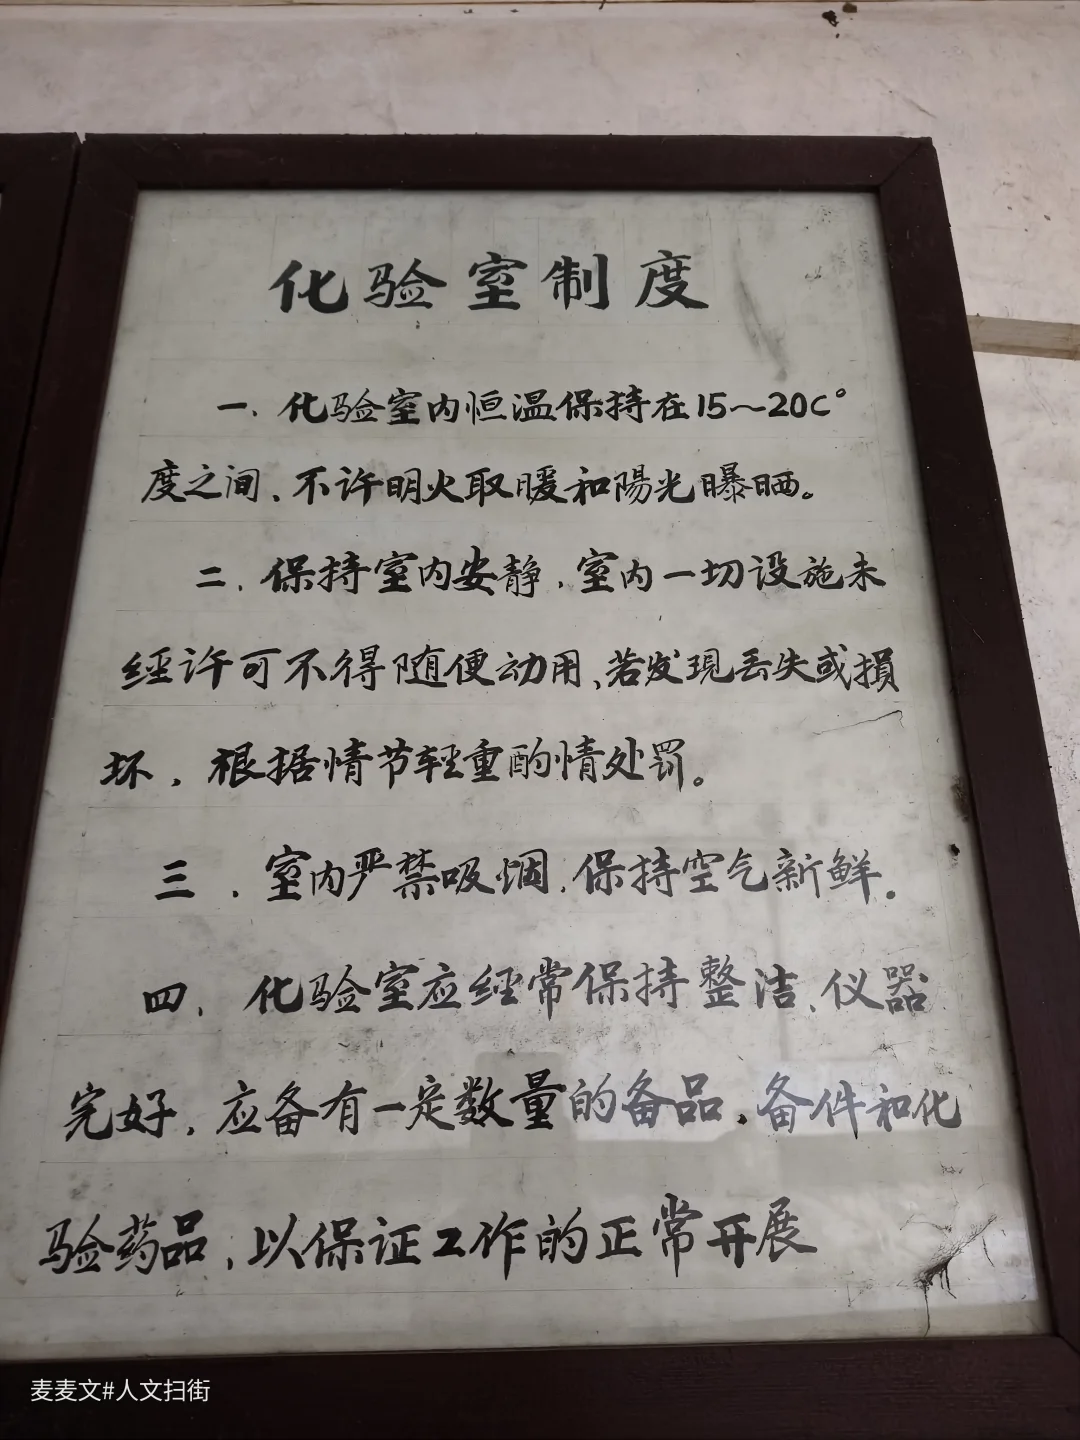 化验室制度
一.化验室内恒温保持在15～20C°
度之间、不许明火取暖和陽光曝晒。
二.保持室内安静.室内一切设施未
经许可不得随便动用、若发现丢失或損
坏,根据情节轻重酌情处罚。
三.室内严禁吸烟.保持空气新鲜.
四.化验室应经常保持整洁、仪器
完好,应备有一定数量的备品.备件和化
验药品,以保证工作的正常开展
麦麦文#人文扫街